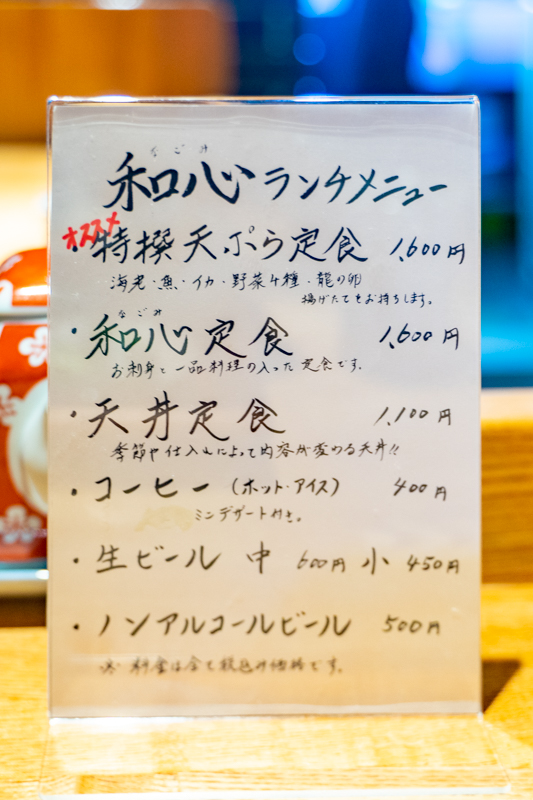 なごみ
和心ランチメニュー
オススメ
・特撰天ぷら定食 1,600円
海老・魚・イカ・野菜4種・龍の卵
揚げたてをお持ちします。
なごみ
・和心定食 1,600円
お刺身と一品料理の入った定食です。
・天丼定食 1,100円
季節や仕入れによって内容が変わる天丼!!
・コーヒー(ホット・アイス) 400円
ミニデザート付き。
・生ビール 中 600円 小 450円
・ノンアルコールビール 500円
※料金は全て税込み価格です。